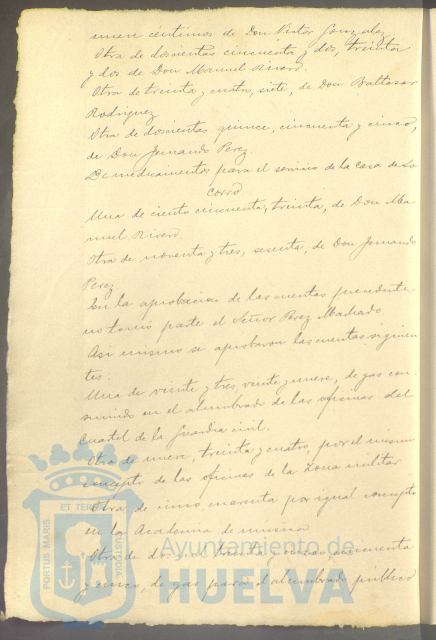 nueve céntimos de Don Victor Gonzalez
Otra de doscientas cincuenta y dos, treinta
y dos de Don Manuel Rivero.
Otra de treinta y cuatro, siete, de Don Baltasar
Rodriguez
Otra de doscientas quince, cincuenta y cinco,
de Don Fernando Perez
De medicamentos para el servicio de la casa de So
corro
Una de ciento cincuenta, treinta, de Don Ma
nuel Rivero
Otra de noventa y tres, sesenta, de Don Fernando
Perez
En la aprobacion de las cuentas precedentes
no tomó parte el Señor Perez Machado
Asi mismo se aprobaron las cuentas siguien
tes.
Una de veinte y tres, veinte y nueve, de gas con
sumido en el alumbrado de las oficinas del
cuartel de la Guardia civil.
Otra de nueve, treinta y cuatro, por el mismo
concepto de las oficinas de la zona militar
Otra de cinco cuarenta por igual concepto
en la Academia de musica
Otra de mil treinta y cincuenta
y cinco, de gas para el alumbrado público
PORTUS MARIS ET TERRAE CUSTODIA
Ayuntamiento de
HUELVA